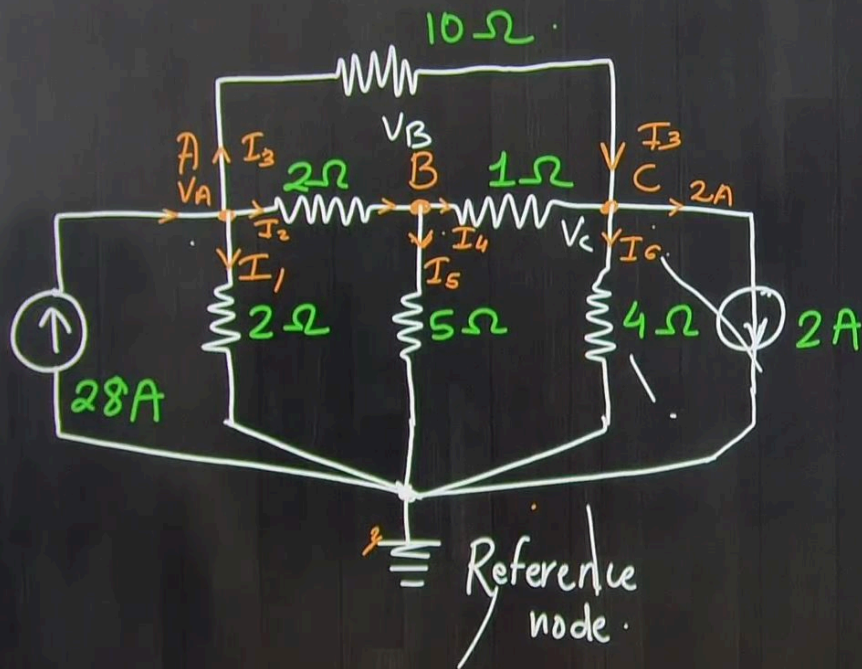 10Ω
VB
A I3 2Ω B 1Ω I3
VA C 2A
I2 I4 Vc I6
I1 I5
2Ω 5Ω 4Ω 2A
28A
Reference
node.